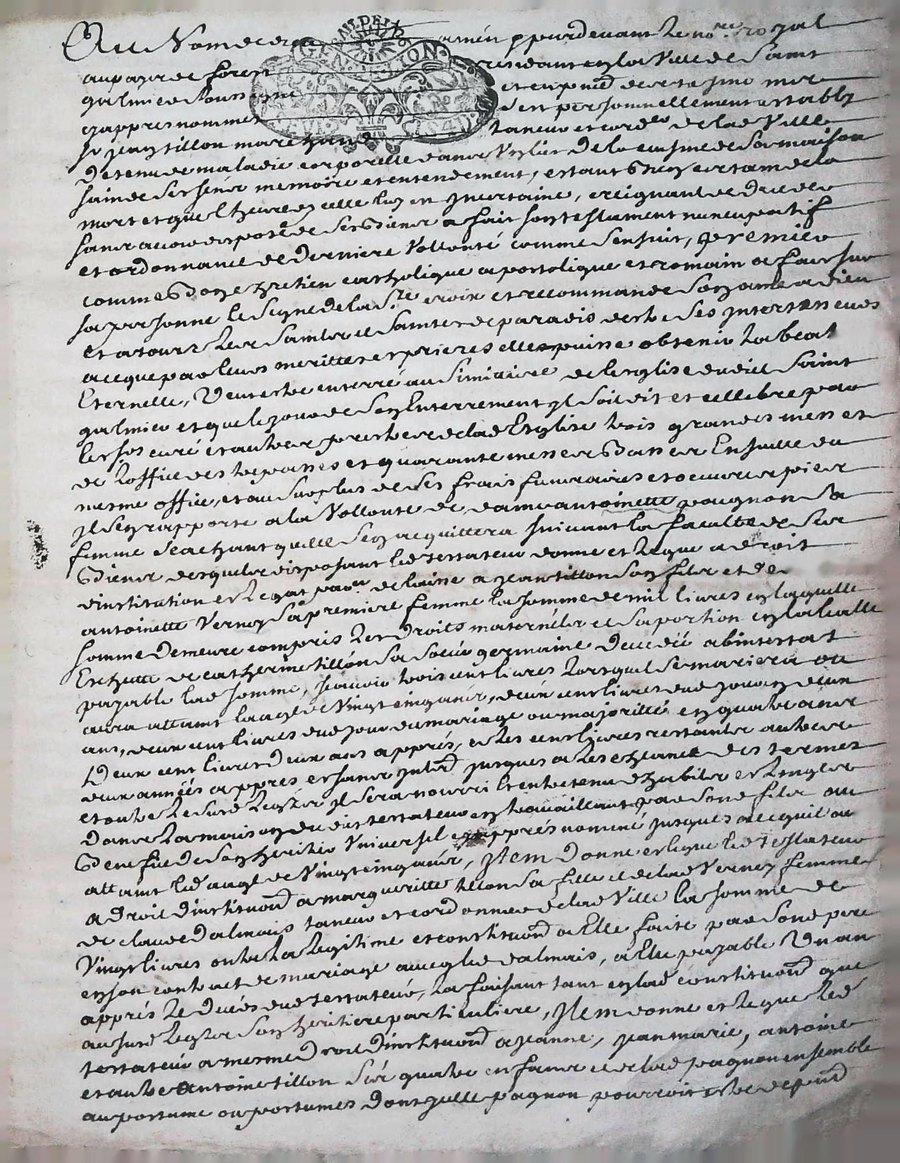 Au Nom de Dieu amen pardevant le no.re royal
au pays de forest residant en la Ville de Saint
galmier soussigné et en p.nce des tesmoins
cyappres nommes s'est personnellement estably
Sr jean tillon marchand taneur et cord.er de lad Ville
detenu de maladie corporelle dans de la cuisine de sa maison
sain de ses sens memoire et entendement, estant bien certain de la
mort et que l'heure d'icelle luy en Incertaine, creignant de deceder
sans avoir disposé de ses Biens a fait son testament nuncupatif
et ordonnance de Derniere Vollonté comme s'ensuit, premier
comme Bon Chretien catholique apostolique et romain a fait sur
sa personne le signe de la Ste croix et recommandé son ame a Dieu
et a tous les Saints et Saintes de paradis de ses Intersesseurs
acque par leurs merittes et prieres elle puisse obtenir la beat
Eternelle, Veut estre enterré au Simitiere de l'eglise dudit Saint
galmier et que le jour de son Enterrement il soit dit et cellebré par
les srs curé et autres prestres de lad Esglise trois grandes messes
de l'office des trepasses et quarante messes Basses Ensuitte du
mesme office, et au surplus de ses frais funeraires et oeuvres pies
il s'en rapporte a la Vollonté de dame antoinette paignon sa
femme sachant quelle s'en acquittera suivant la faculté de ses
Biens desquels disposant led testateur donne et legue a droit
d'institution et legat a jean tillon son fils et de
antoinette Verney sa premiere femme la somme de mil livres en laquelle
somme demeure compris les droits maternels et sa portion en la
de catherine tillon sa soeur germaine decedée abintestat
payable lad somme, scavoir trois cent livres lorsquil se mariera ou
aura attaint laage de vingt cinq ans, deux cent livres dud jour en deux
ans, deux cent livres dud jour du mariage ou majoritté en quatre ans
deux cent livres deux ans apprés, et les cent livres restantes autres
deux années appres et sans Interest jusques a les echeance des termes
et outre le sud legat il sera nourri et entretenu d'habits et linges
dans la maison dudit testateur en travaillant par sond fils au
Benefice de son heritier Universel cyapprés nommé jusques a ce quil ait
attaint led aage de Vingt cinq ans, Item donne et legue led testateur
a droit d'institution a margueritte tillon sa fille et de lad Verney femme
de claude dalmais taneur et cordonnier de lad Ville la somme de
Vingt livres outre la legitime et constitution a Elle faite par sond pere
en son contract de mariage avec led dalmais, a elle payable Un an
apprés le decés dud testateur, la faisant tant en lad constitution que
au sud legat son heritiere particuliere, Item donne et legue led
testateur a mesme droit d'institution a jeanne, jean marie, antoine
et autre antoine tillon ses quatre enfans et de lad paignon ensemble
au postume ou postumes dont elle paignon pourroit estre